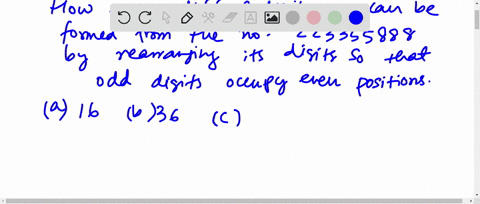 How can be
formed from the no. 223355888
by rearranging its digits so that
odd digits occupy even positions.
(a) 16 (b) 36 (c)